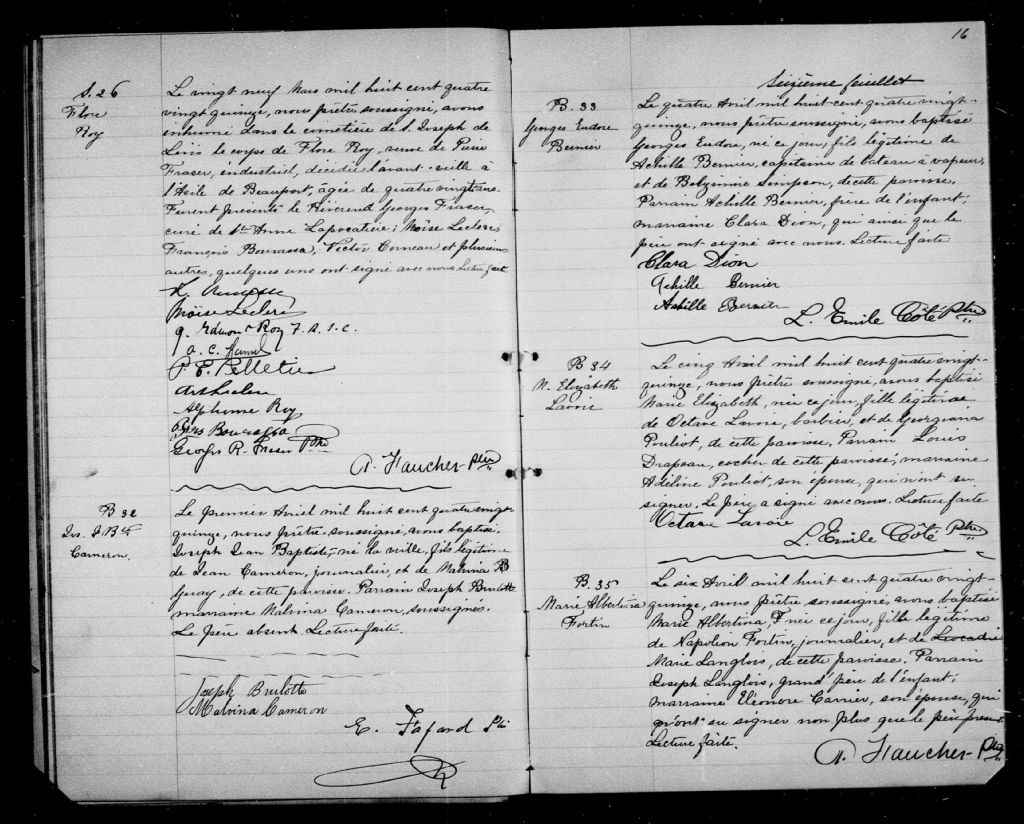 S. 26
Flore
Roy
Le vingt neuf Mars mil huit cent quatre
vingt quinze, nous prêtre soussigné, avons
inhumé dans le cimetière de S. Joseph de
Lévis le corps de Flore Roy, veuve de Pierre
Fraser, industriel, décédée l'avant-veille à
l'Asile de Beauport, âgée de quatre vingt ans.
Furent présents le Révérend Georges Fraser,
curé de Ste Anne Lapocatière; Moïse Leclerc,
François Bourassa, Victor Corneau et plusieurs
autres, quelques uns ont signé avec nous Lecture faite
Moïse Leclerc
J. Edmond Roy F. R. S. C.
A. C. Hamel
P. E. Pelletier
Alphonse Roy
Bourassa
Georges R. Fraser Ptre
A. Faucher Ptre
B 32
Jos. J. Bte
Cameron.
Le premier Avril mil huit cent quatre vingt
quinze, nous prêtre soussigné, avons baptisé
Joseph Jean Baptiste, né la veille, fils légitime
de Jean Cameron, journalier, et de Malvina
Guay, de cette paroisse. Parrain Joseph Brulotte
marraine Malvina Cameron, soussignés.
Le père absent Lecture faite.
Joseph Brulotte
Malvina Cameron
E. Fafard Ptr
16
Sixième feuillet
B. 33
Georges Eudore
Bernier
Le quatre Avril mil huit cent quatre vingt-
quinze, nous prêtre soussigné, avons baptisé
Georges Eudore, né ce jour, fils légitime de
Achille Bernier, capitaine de bateau à vapeur,
et de Belzémire Simpson, de cette paroisse.
Parrain Achille Bernier, frère de l'enfant;
marraine Clara Dion, qui ainsi que le
père ont signé avec nous. Lecture faite
Clara Dion
Achille Bernier
Achille Bernier
L. Emile Côté Ptre
B 34
M. Elizabeth
Lavoie
Le cinq Avril mil huit cent quatre vingt-
quinze, nous prêtre soussigné, avons baptisé
Marie Elizabeth, née ce jour, fille légitime
de Octave Lavoie, barbier, et de Georgiana
Pouliot, de cette paroisse. Parrain Louis
Drapeau, cocher de cette paroisse; marraine
Adéline Pouliot, son épouse, qui n'ont su
signer. Le père a signé avec nous. Lecture faite
Octave Lavoie
L. Emile Côté Ptre
B. 35
Marie Albertina
Fortin
Le six Avril mil huit cent quatre vingt-
quinze, nous prêtre soussigné, avons baptisé
Marie Albertina, née ce jour, fille légitime
de Napoléon Fortin, journalier, et de Leocadie
Marie Langlois, de cette paroisse. Parrain
Joseph Langlois, grand'père de l'enfant;
marraine Eléonore Carrier, son épouse, qui
n'ont su signer non plus que le père présent.
Lecture faite.
A. Faucher Ptre